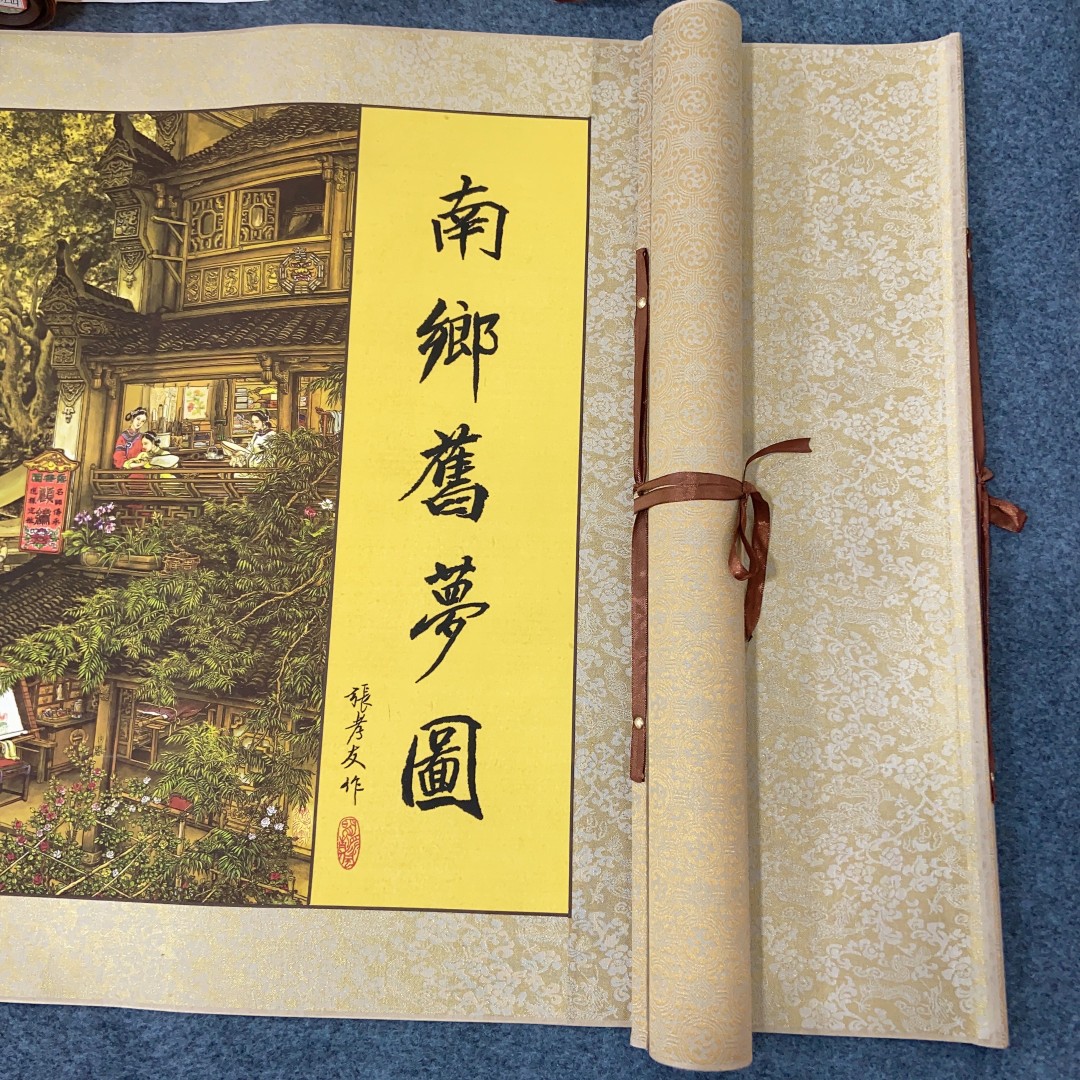 南鄉舊夢圖
張孝友作
顧繡